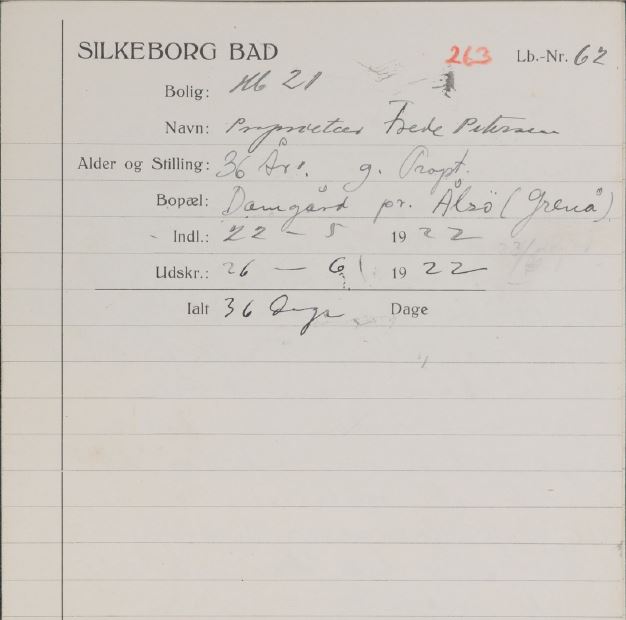 SILKEBORG BAD 263 Lb.-Nr. 62
Bolig: Hb 21
Navn: Proprietær Frede Petersen
Alder og Stilling: 36 År. g. Propt.
Bopæl: Damgård pr. Ålsö (Grenå)
Indl.: 22 - 5 1922
Udskr.: 26 - 6 1922
Ialt 36 Dage Dage